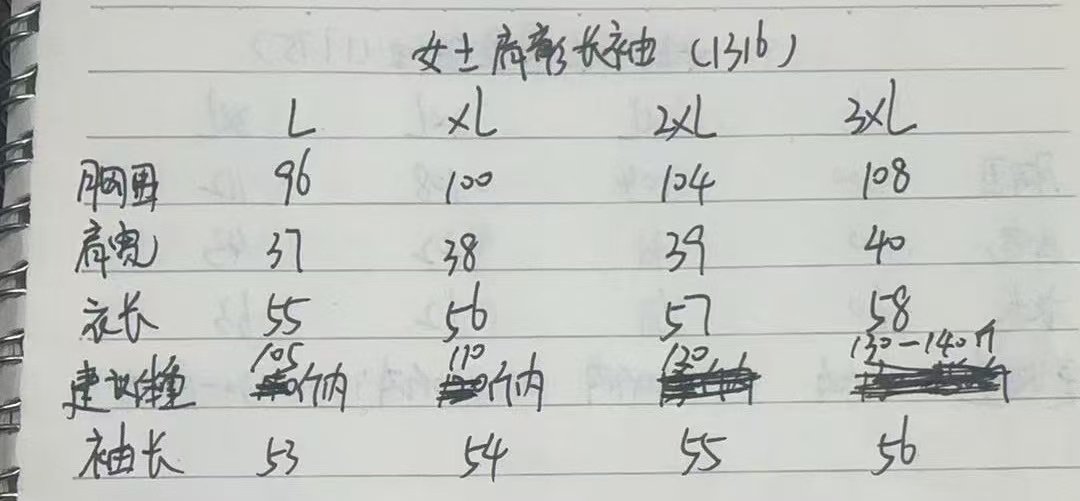 女士肩章长袖(1316)
L XL 2XL 3XL
胸围 96 100 104 108
肩宽 37 38 39 40
衣长 55 56 57 58
建议体重 105斤内 110斤内 120 130-140斤
袖长 53 54 55 56